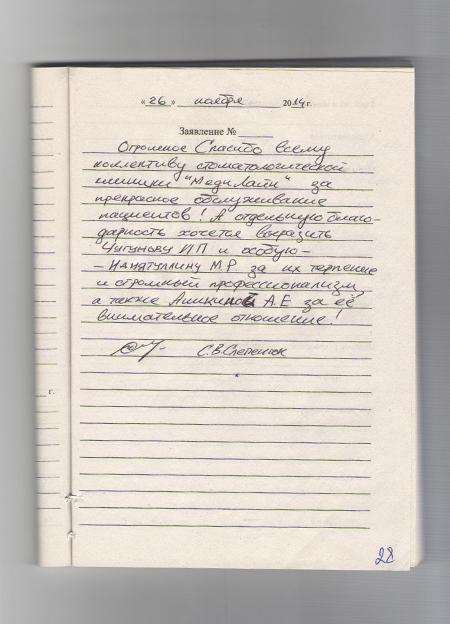 «26» ноября 2014 г.
Заявление №
Огромное Спасибо всему
коллективу стоматологической
клиники "МедиЛайн" за
прекрасное обслуживание
пациентов! А отдельную благо-
дарность хочется выразить
И П и особую -
- М.Р за их терпение
и огромный профессионализм,
а также Ашкиной А.Е за её
внимательное отношение!
С.В.
г.
28